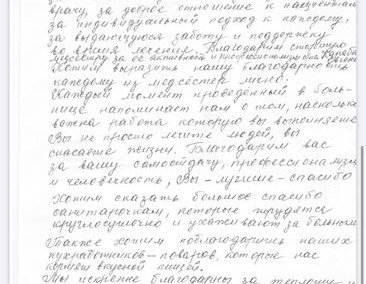 врачу, за доброе отношение к пациентам
за индивидуальный подход к каждому,
за выдающуюся заботу и поддержку
во время лечения. Благодарим старшую
медсестру за ее активность и
Хотим выразить нашу благодарность
каждому из медсестер лично.
Каждый момент проведенный в боль-
нице напоминает нам о том, насколько
важна работа которую вы выполняете
Вы не просто лечите людей, вы
спасаете жизни. Благодарим вас
за вашу самоотдачу, профессионализм
и человечность, Вы - лучшие - спасибо
Хотим сказать большое спасибо
санитарочкам, которые трудятся
круглосуточно и ухаживают за больными
Также хотим поблагодарить наших
кухработников - поваров, которые нас
кормят вкусной пищей.
Мы искренне благодарны за теплоту и